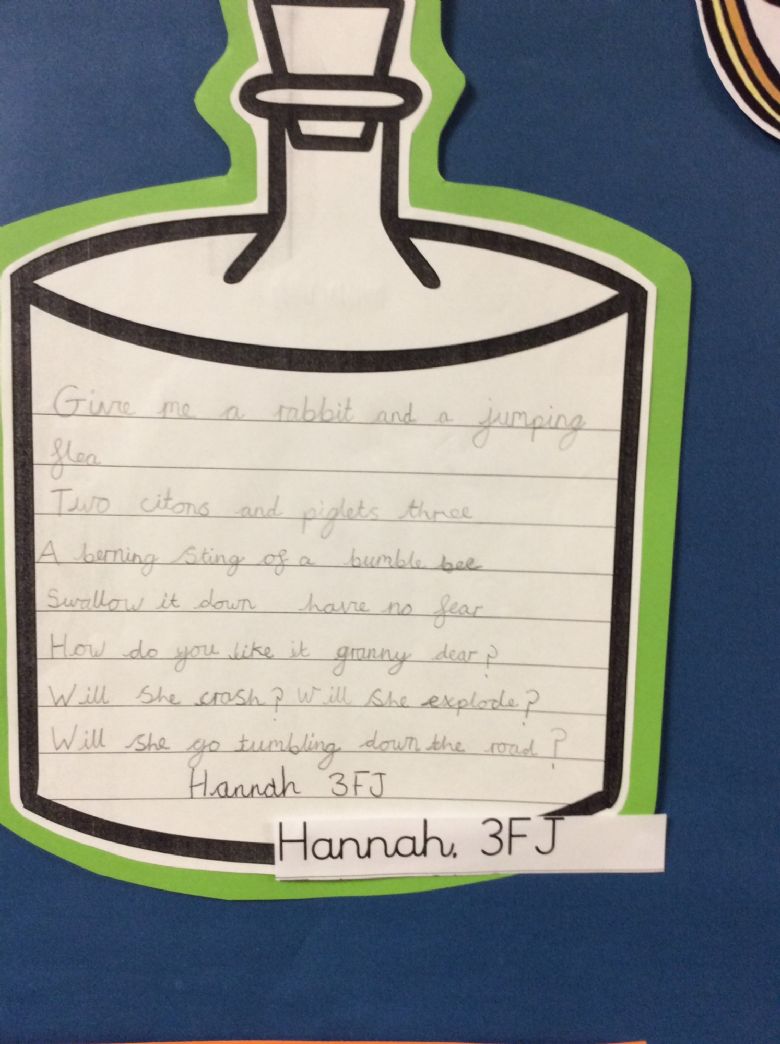 Give me a rabbit and a jumping
flea
Two citons and piglets three
A berning sting of a bumble bee
Swallow it down have no fear
How do you like it granny dear?
Will she crash? Will she explode?
Will she go tumbling down the road?
Hannah 3FJ
Hannah. 3FJ